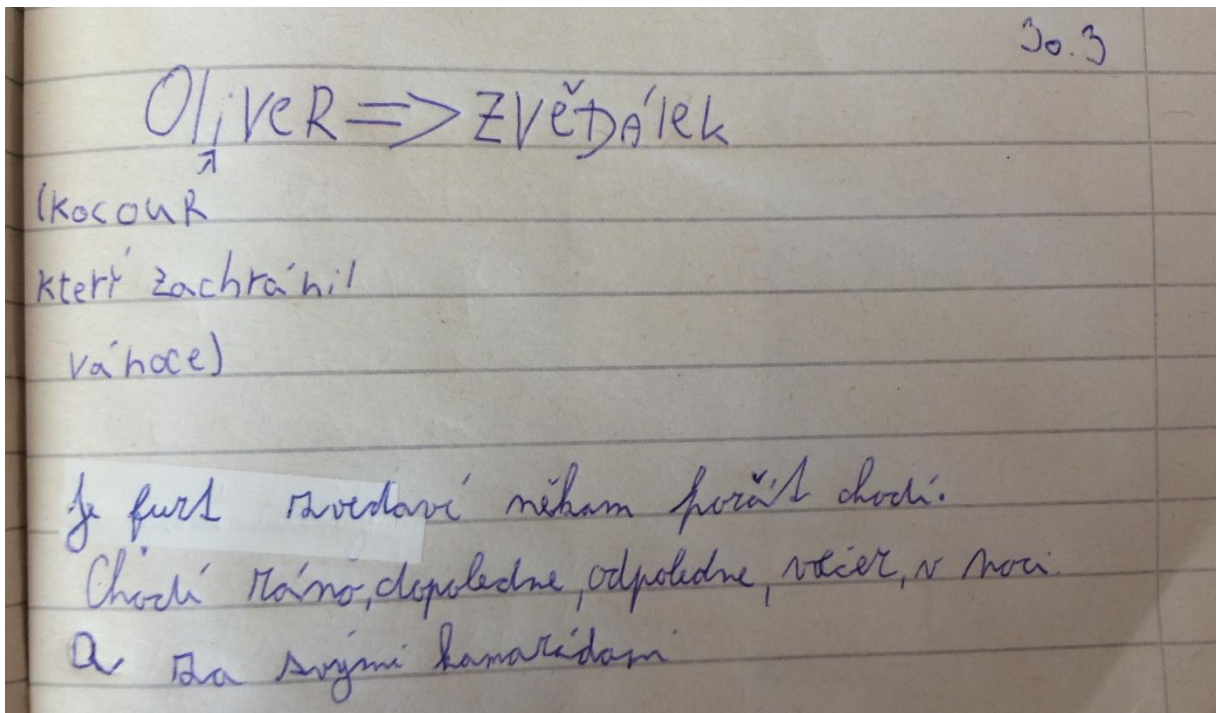 30.3
OliveR => ZVĚĎÁlek
(kocouR
kterí zachránil
vánoce)
Je furt zvedaví někam pořát chodí.
Chodí ráno, dopoledne, odpoledne, večer, v noci.
a za svými kamarádami